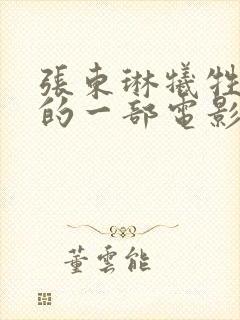 張東琳犧牲
的一部電影
董雲能